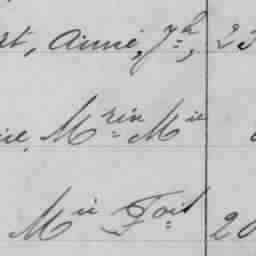 rt, Aimé, Jh, 23
ie, Mrin Mie
Mie Fois 20